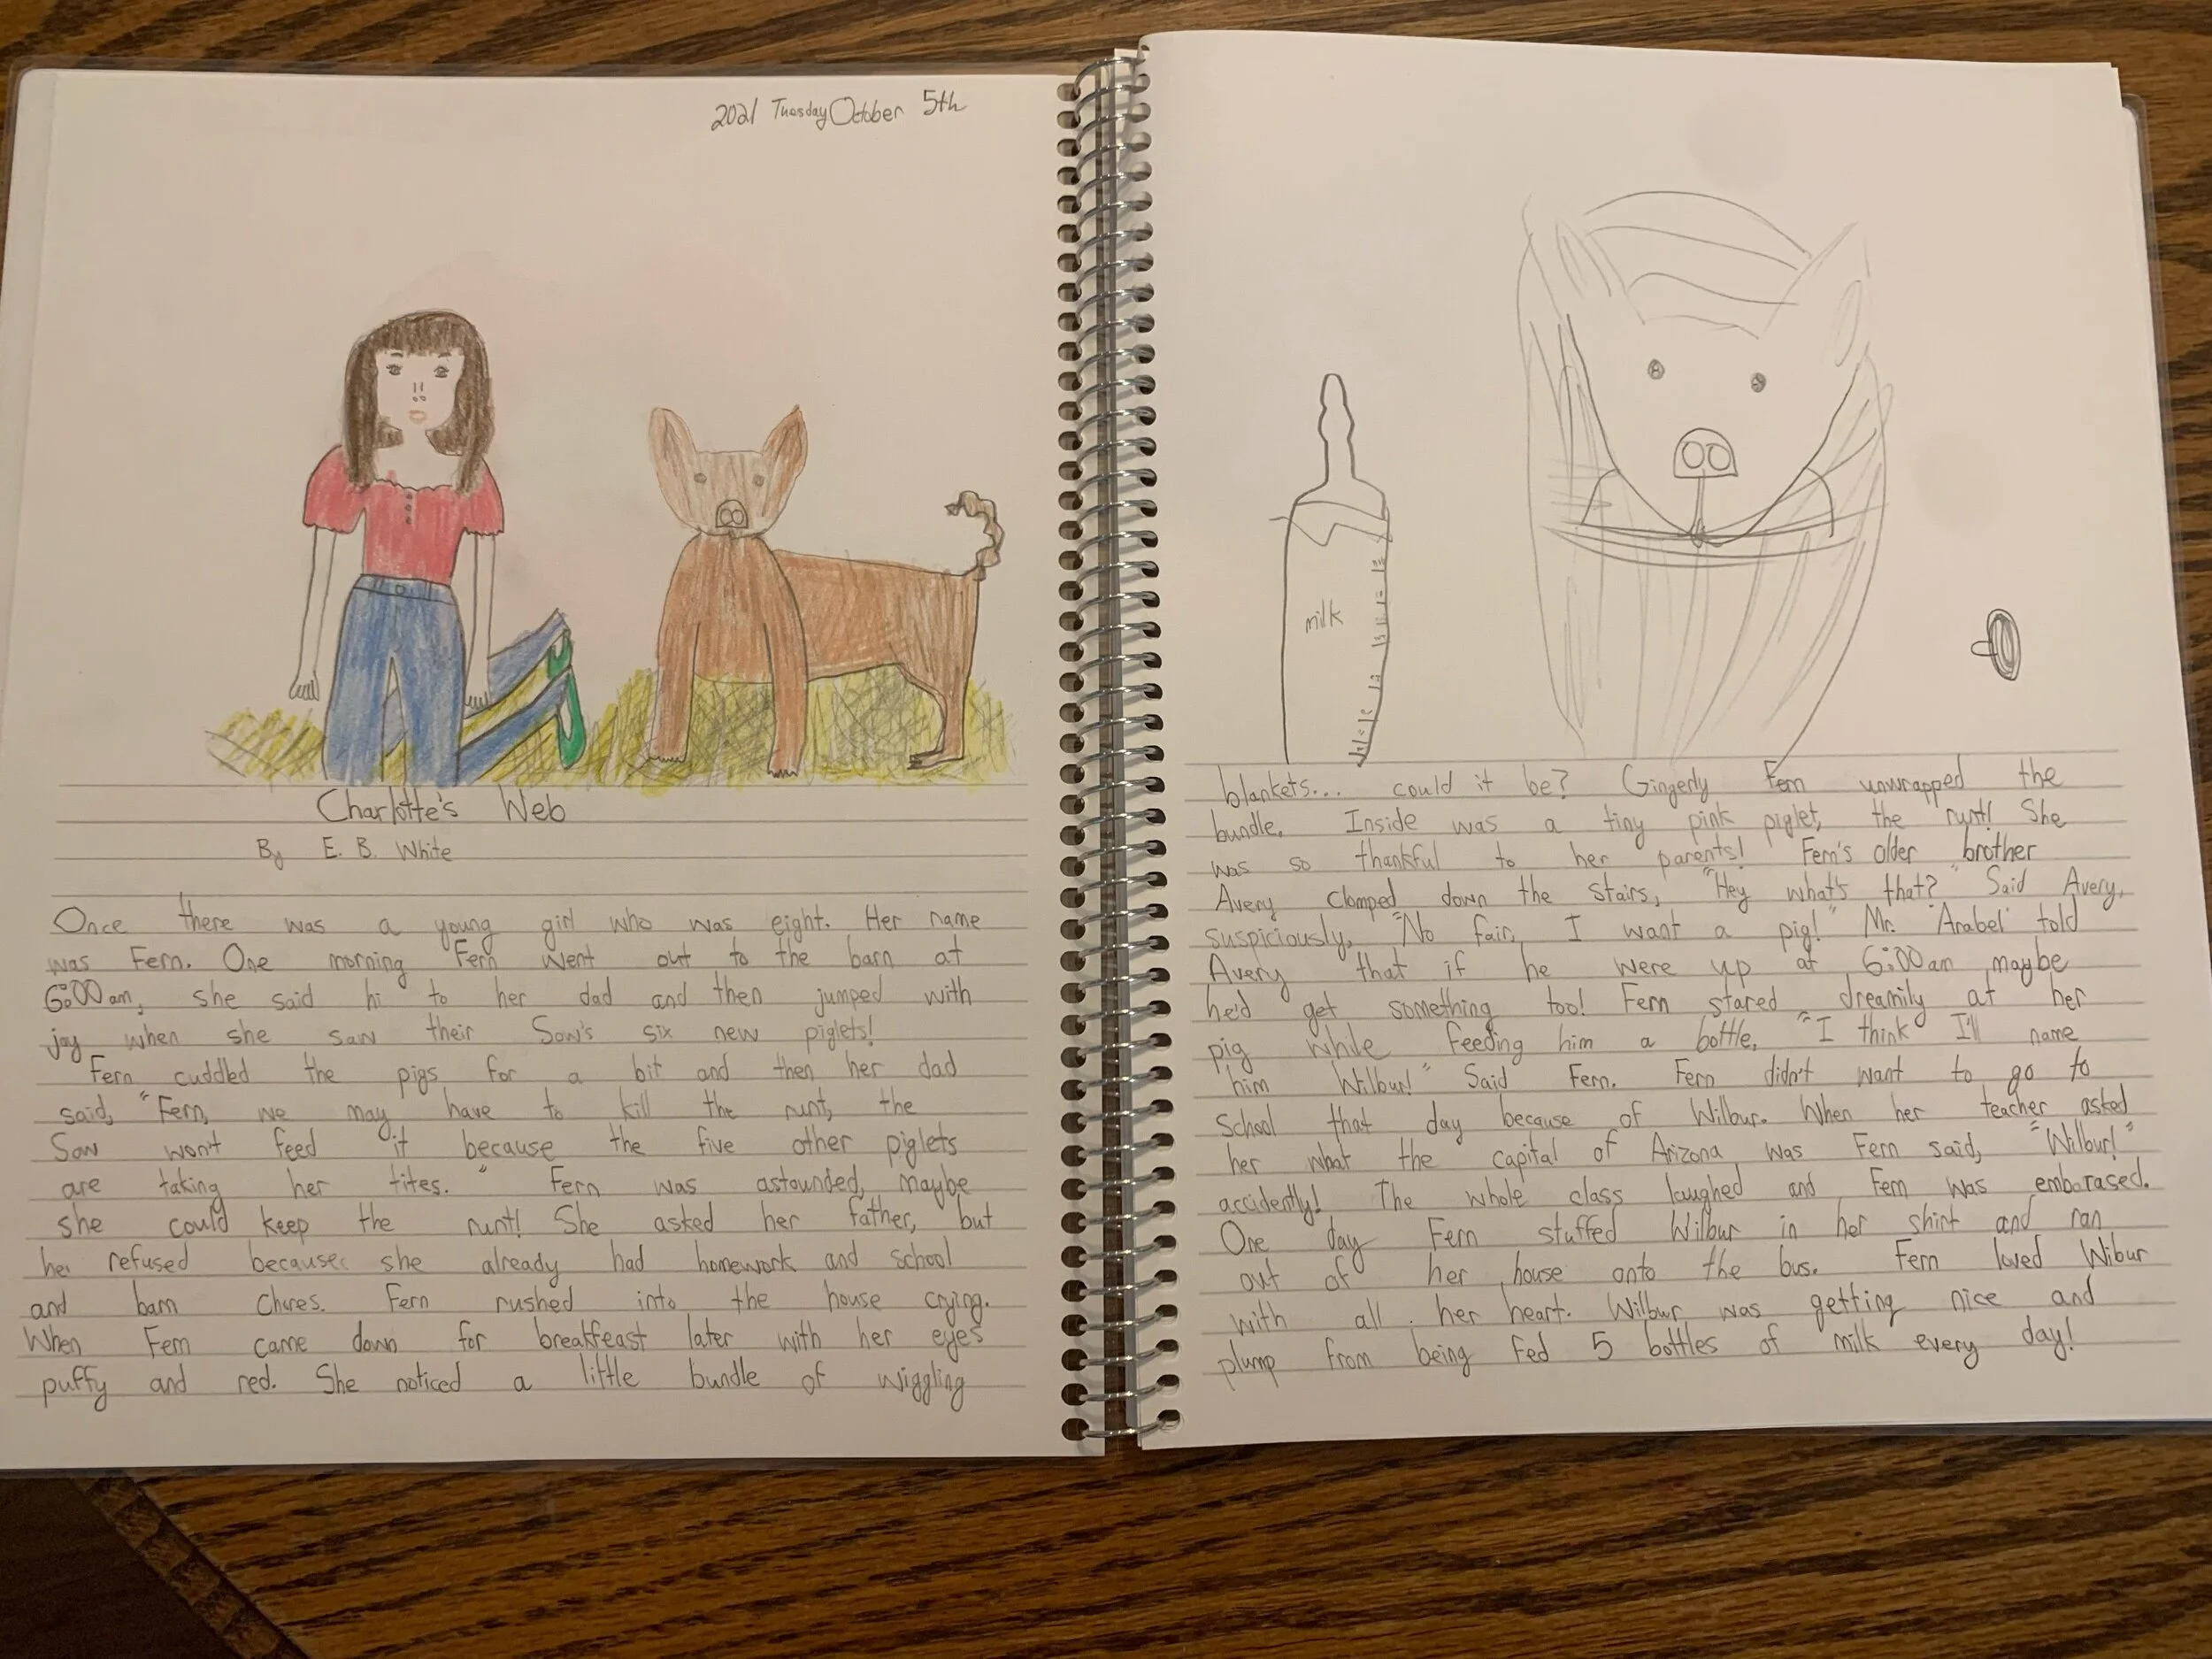 2021 Tuesday October 5th
Charlotte's Web
By E. B. White
Once there was a young girl who was eight. Her name
was Fern. One morning Fern went out to the barn at
6:00am, she said hi to her dad and then jumped with
joy when she saw their Sow's six new piglets!
Fern cuddled the pigs for a bit and then her dad
said, "Fern, we may have to kill the runt, the
Sow won't feed it because the five other piglets
are taking her tites." Fern was astounded, maybe
she could keep the runt! She asked her father, but
he refused because she already had homework and school
and barn chores. Fern rushed into the house crying.
When Fern came down for breakfeast later with her eyes
puffy and red. She noticed a little bundle of wiggling
milk
blankets... could it be? Gingerly Fern unwrapped the
bundle. Inside was a tiny pink piglet, the runt! She
was so thankful to her parents! Fern's older brother
Avery clomped down the stairs, "Hey what's that?" Said Avery,
suspiciously, "No fair, I want a pig!" Mr. Arabel told
Avery that if he were up at 6:00am maybe
he'd get something too! Fern stared dreamily at her
pig while feeding him a bottle, "I think I'll name
him Wilbur!" Said Fern. Fern didn't want to go to
School that day because of Wilbur. When her teacher asked
her what the capital of Arizona was Fern said, "Wilbur!"
accidently! The whole class laughed and Fern was embarased.
One day Fern stuffed Wilbur in her shirt and ran
out of her house onto the bus. Fern loved Wibur
with all her heart. Wilbur was getting nice and
plump from being fed 5 bottles of milk every day!